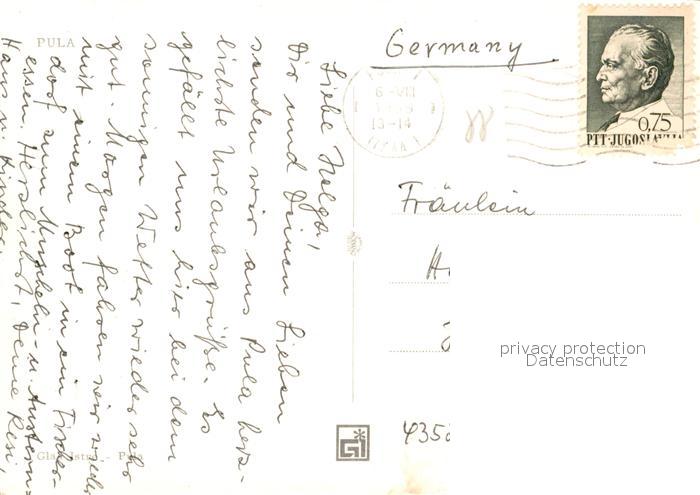 PULA
Germany
6-VII
13-14
0,75
PTT-JUGOSLAVIJA
Liebe Helga!
Dir und Deinen Lieben
senden wir aus Pula herz-
lichste Urlaubsgrüße. Es
gefällt uns hier bei dem
sonnigen Wetter wieder sehr
gut. Morgen fahren wir wieder
mit einem Boot in ein Fischer-
dorf zum Muscheln- u. Austern-
essen. Herzlichst, Deine Resi,
Hans u. Kinder.
Fräulein
H
privacy protection
Datenschutz
435
Glas Istre - Pula